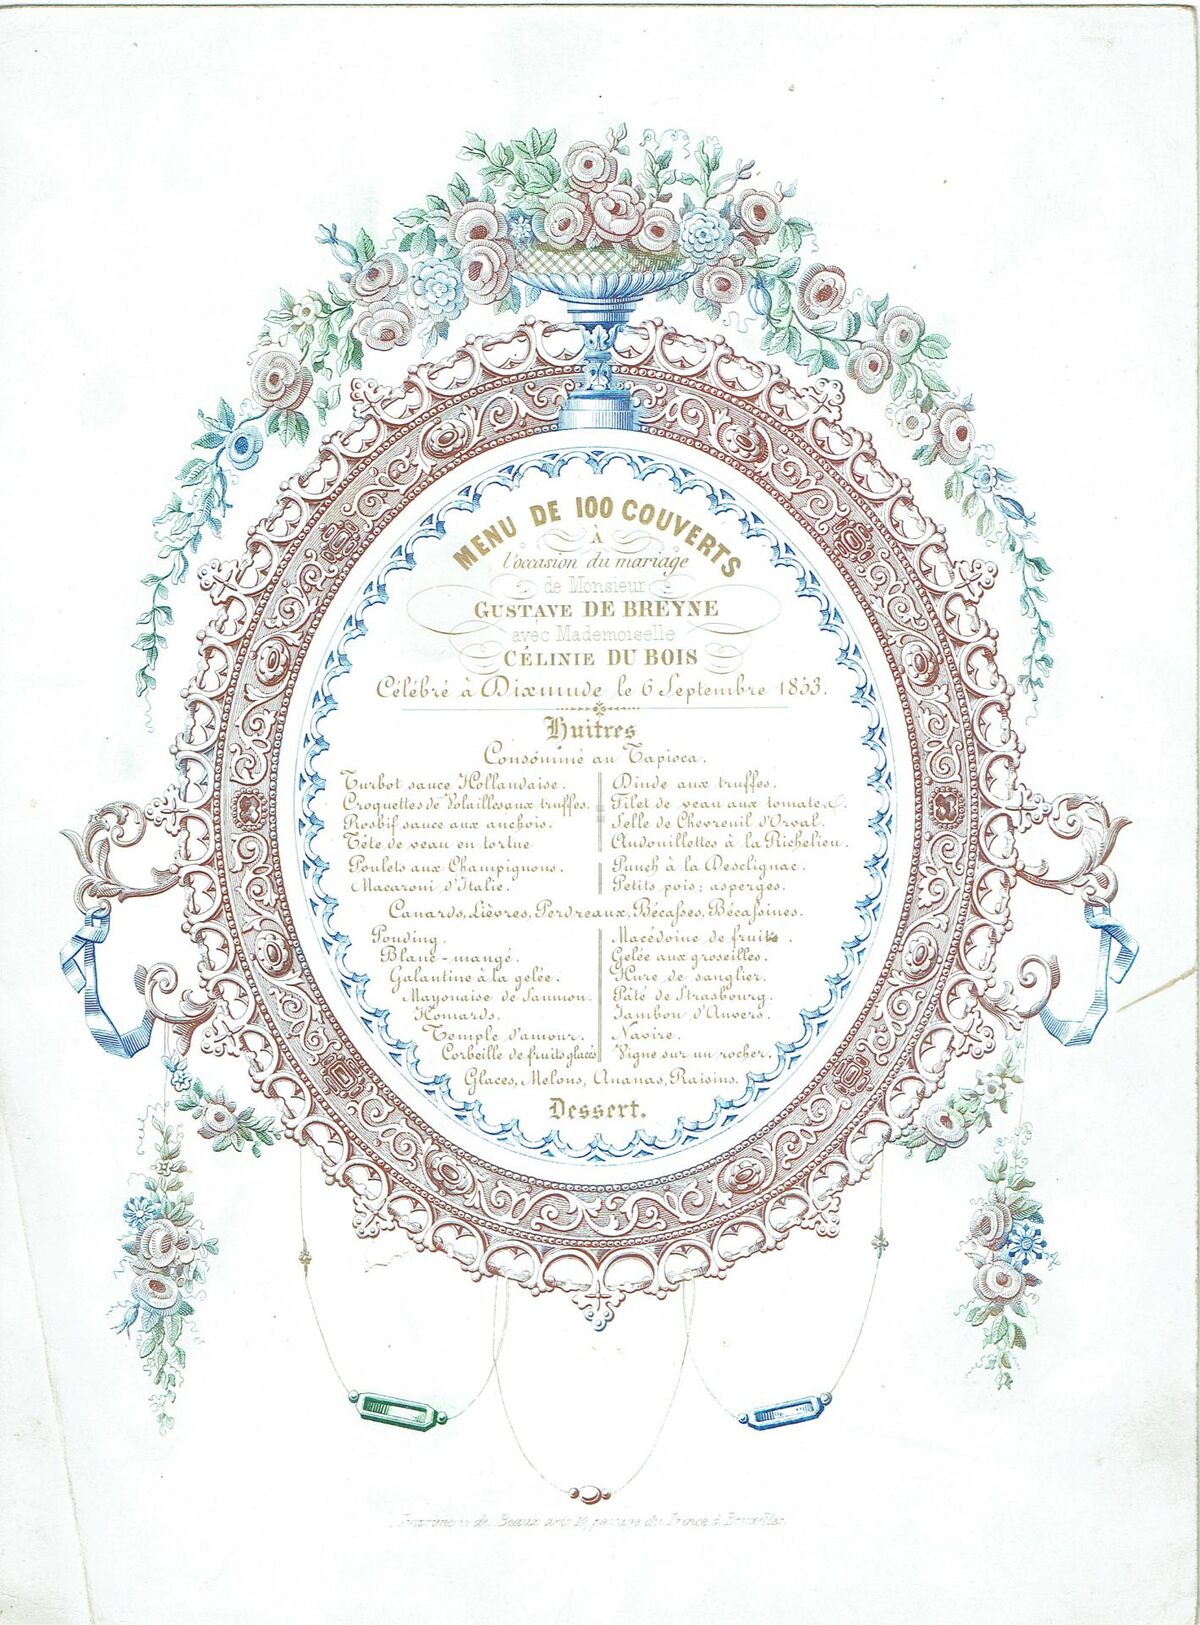 MENU DE 100 COUVERTS
À
l'occasion du mariage
de Monsieur
GUSTAVE DE BREYNE
avec Mademoiselle
CÉLINIE DU BOIS
Célébré à Dixmude le 6 Septembre 1853.
Huitres
Consommé au Tapioca.
Turbot sauce Hollandaise.
Croquettes de Volailles aux truffes.
Rosbif sauce aux anchois.
Tête de veau en tortue
Poulets aux Champignons.
Macaroni d'Italie.
Dinde aux truffes.
Filet de veau aux tomates.
Selle de Chevreuil d'Orval.
Andouillettes à la Richelieu.
Punch à la Desclignac.
Petits pois; asperges.
Canards, Lièvres, Perdreaux, Bécasses, Bécassines.
Pouding.
Blanc-mangé.
Galantine à la gelée.
Mayonaise de Saumon.
Homards.
Temple d'amour.
Corbeille de fruits glacés
Macédoine de fruits.
Gelée aux groseilles.
Hure de sanglier.
Pâté de Strasbourg.
Jambon d'Anvers.
Navire.
Vigne sur un rocher.
Glaces, Melons, Ananas, Raisins.
Dessert.
Imprimerie des Beaux arts 10, passage du Prince à Bruxelles.